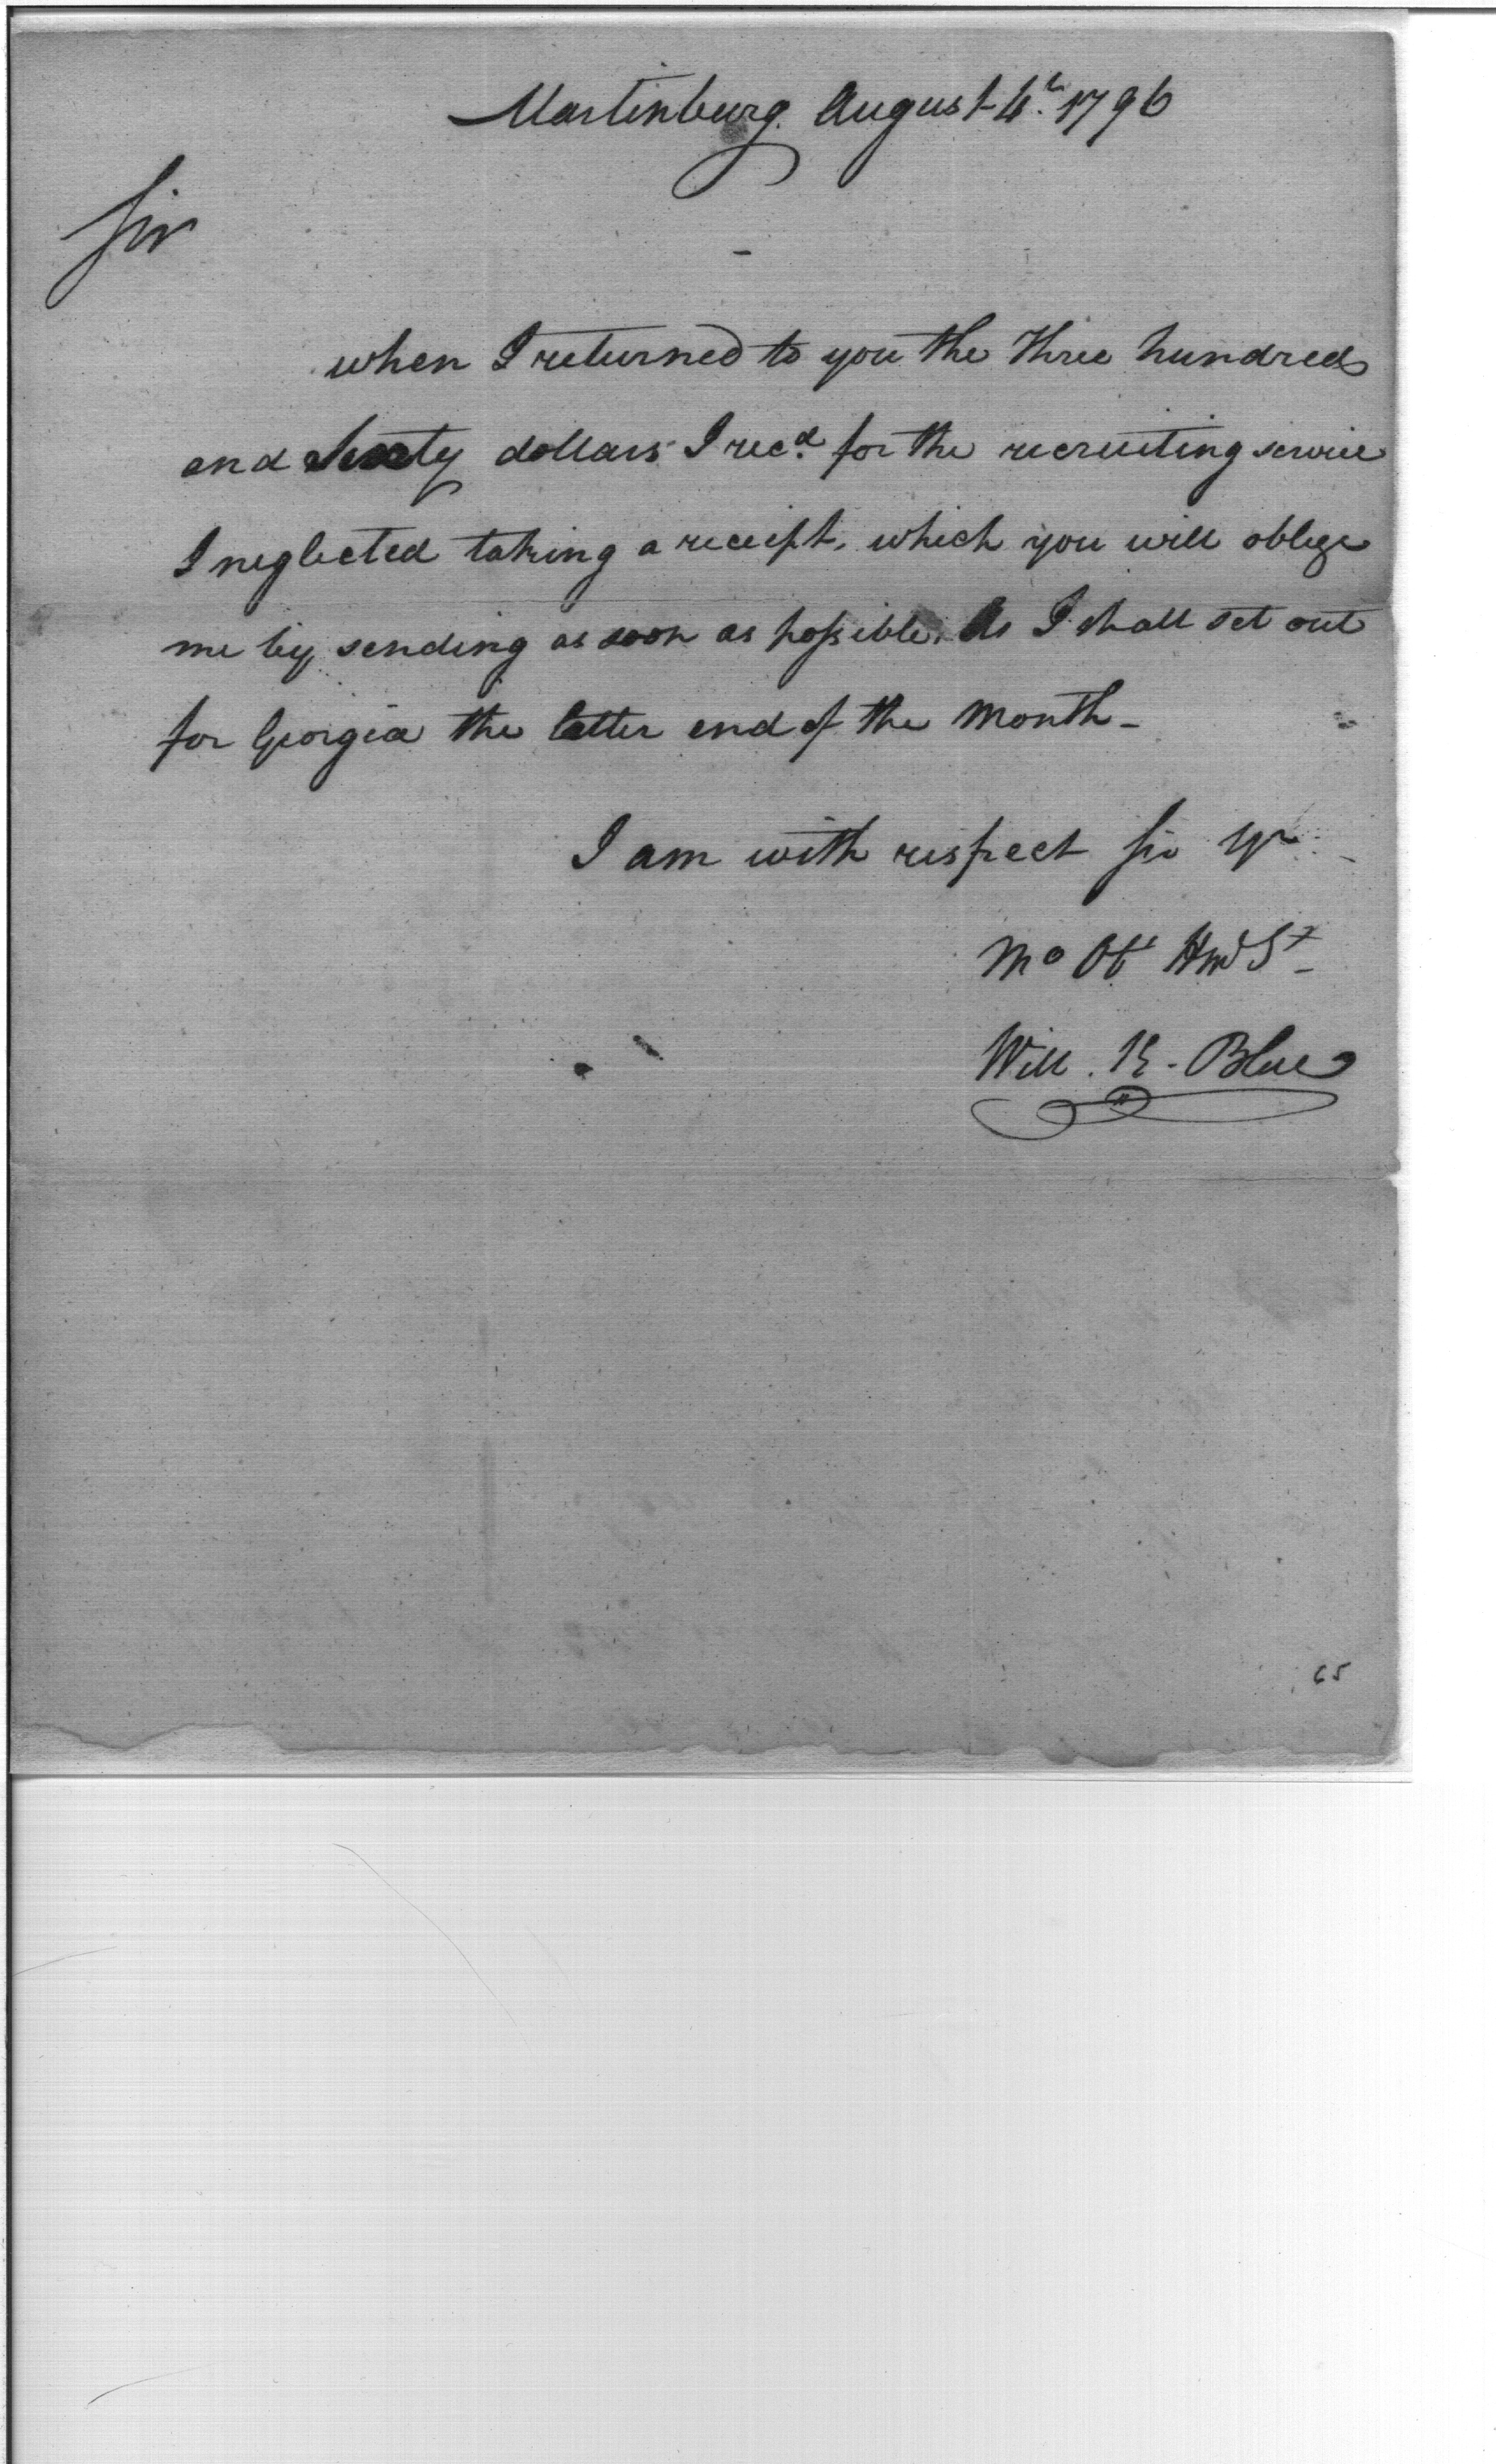 Martinburg August 4th 1796
Sir
when I returned to you the Three hundred
and Sixty dollars I recd for the recruiting service
I neglected taking a receipt, which you will oblege
me by sending as soon as possible. As I shall set out
for Georgia the latter end of the Month -
I am with respect Sir Yr
Mo Ob Hm St
Will. K. Blue
65